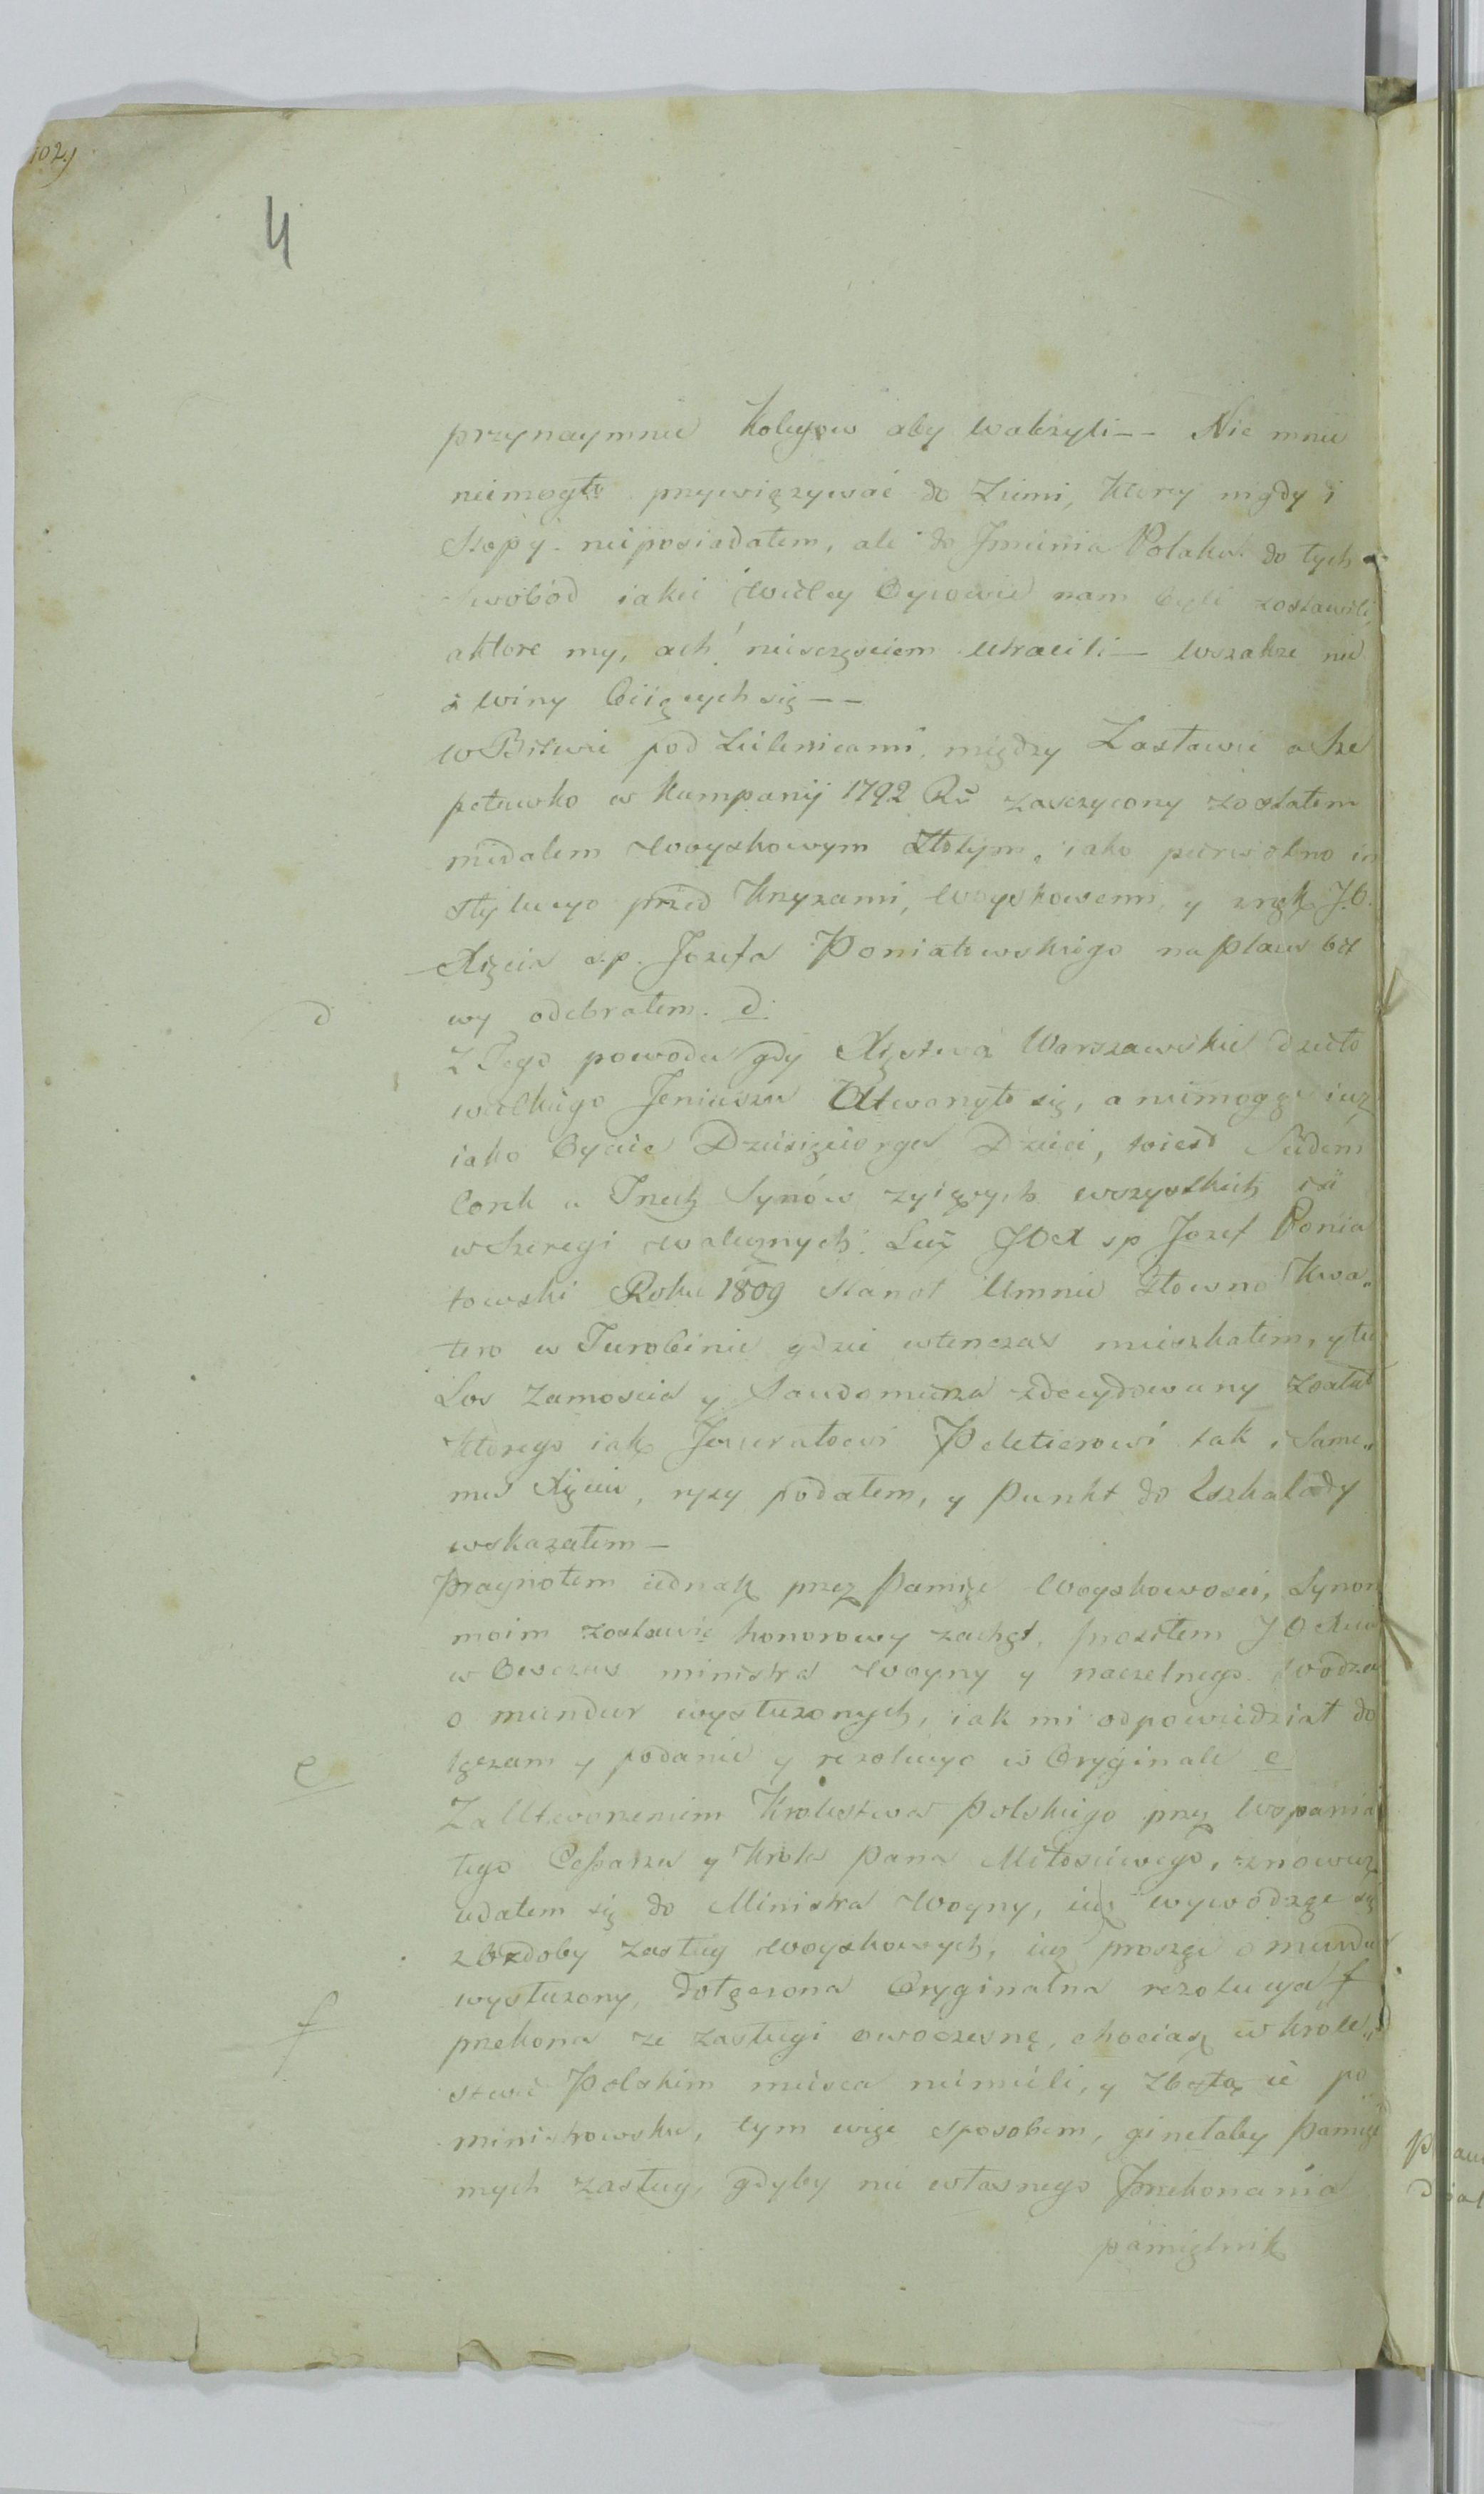 102)
4
przynaymnie Kolegow aby walczyli -- Nic mnie
niemogło przywięzywać do Ziemi, Ktorey nigdy i
stopy nieposiadałem, ale do Jmienia Polaka do tych
swobód iakie wielcy Oycowie nam byli zostawili,
aktore my, ach! niesczęsciem utracili — wszakze nie
z winy biiących się --
w Bitwie pod Zielenicami między Zasławiem a Sze
petuwko w Kampanij 1792 Ru zasczycony zostałem
medalem woyskowym złotym, iako pierwotno in
stytucyo przed Krzyzami, woyskowemi, y z rąk J.O.
Xięcia s.p. Jozefa Poniatowskiego na placu bit
wy odebrałem. d.
d
Z Tego powodu gdy Xięstwa Warszawskie dzieło
wielkiego Jeniusza Utworzyło się, a niemogąc iuz
iako Oyciec Dziesięciorga Dzieci, to iest Siedem
Corek a Trzech Synów zyiących wszystkich iść
w Szeregi walecznych. Lecz JOX sp Jozef Ponia
towski Roku 1809 stanoł Umnie Głowno Kwa„
tero w Turobinie gdzie wtenczas mieszkałem, y tu
Los Zamoscia y Sandomierza zdecydowany został
Ktorego iak Jenerałowi Peletierowi tak i Same„
mu Xięciu, rysy podałem, y Punkt do Eszkalady
wskazałem —
Pragnołem iednak przez Pamięc Woyskowosci, Synom
moim zostawic honorowy zachęt, prosiłem JOXcia
w owczas ministra woyny y naczelnego Wodza
o mundur wysłuzonych, iak mi odpowiedział do
łączam y podanie y rezolucyo w Oryginale e
e
Za Utworzeniem Krolestwa Polskiego przez Wspania
łego Cesarza y Krola Pana Miłosciwego, znowuz
udałem się do Ministra Woyny, iuz wywodząc się
z Ozdoby zasług woyskowych, iuz prosząc o mundur
wysłuzony, dołączona Oryginalna rezolucya f
f
przekona ze zasługi owoczesne, chociaz w Krole„
stwie Polskim mieisca niemieli, y zbyto ie po
ministrowsku, tym więc sposobem, ginełaby Pamięc
mych zasług, gdyby nie własnego Przekonania
pamiętnik